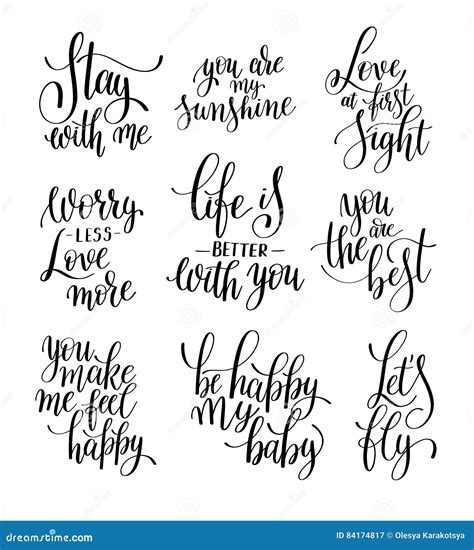 Stay
with me
you are
my
sunshine
Love
at first
Sight
worry
-LESS-
Love
more
life is
-BETTER-
with you
you
are
the
best
you
make
me feel
happy
be happy
my
baby
Let's
fly
dreamstime.com
ID 84174817 © Olesya Karakotsya